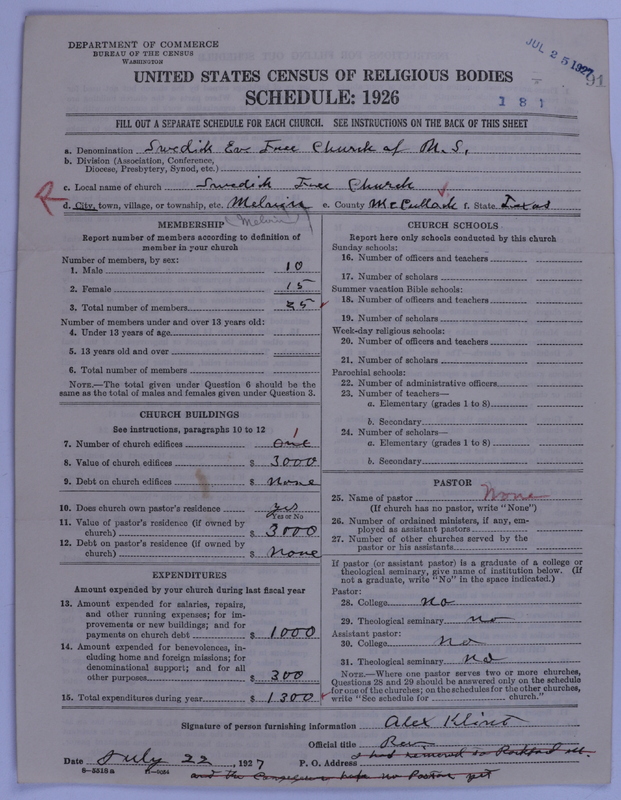 DEPARTMENT OF COMMERCE
BUREAU OF THE CENSUS
WASHINGTON
JUL 25 1927
91
UNITED STATES CENSUS OF RELIGIOUS BODIES
SCHEDULE: 1926
181
FILL OUT A SEPARATE SCHEDULE FOR EACH CHURCH. SEE INSTRUCTIONS ON THE BACK OF THIS SHEET
a. Denomination Swedish Eve Free Church of N. S,
b. Division (Association, Conference,
Diocese, Presbytery, Synod, etc.)
c. Local name of church Swedish Free Church
R d. City, town, village, or township, etc. Melvin e. County McCullock f. State Texas
(Melvin)
MEMBERSHIP
Report number of members according to definition of
member in your church
Number of members, by sex:
1. Male 10
2. Female 15
3. Total number of members 25
Number of members under and over 13 years old:
4. Under 13 years of age
5. 13 years old and over
6. Total number of members
NOTE.—The total given under Question 6 should be the
same as the total of males and females given under Question 3.
CHURCH BUILDINGS
See instructions, paragraphs 10 to 12
7. Number of church edifices one 1
8. Value of church edifices $ 3000
9. Debt on church edifices $ none
10. Does church own pastor's residence yes
Yes or No
11. Value of pastor's residence (if owned by
church) $ 3000
12. Debt on pastor's residence (if owned by
church) $ none
EXPENDITURES
Amount expended by your church during last fiscal year
13. Amount expended for salaries, repairs,
and other running expenses; for im-
provements or new buildings; and for
payments on church debt $ 1000
14. Amount expended for benevolences, in-
cluding home and foreign missions; for
denominational support; and for all
other purposes $ 300
15. Total expenditures during year $ 1300
CHURCH SCHOOLS
Report here only schools conducted by this church
Sunday schools:
16. Number of officers and teachers
17. Number of scholars
Summer vacation Bible schools:
18. Number of officers and teachers
19. Number of scholars
Week-day religious schools:
20. Number of officers and teachers
21. Number of scholars
Parochial schools:
22. Number of administrative officers
23. Number of teachers—
a. Elementary (grades 1 to 8)
b. Secondary
24. Number of scholars—
a. Elementary (grades 1 to 8)
b. Secondary
PASTOR
25. Name of pastor None
(If church has no pastor, write "None")
26. Number of ordained ministers, if any, em-
ployed as assistant pastors
27. Number of other churches served by the
pastor or his assistants
If pastor (or assistant pastor) is a graduate of a college or
theological seminary, give name of institution below. (If
not a graduate, write "No" in the space indicated.)
Pastor:
28. College no
29. Theological seminary no
Assistant pastor:
30. College No
31. Theological seminary no
NOTE.—Where one pastor serves two or more churches,
Questions 28 and 29 should be answered only on the schedule
for one of the churches; on the schedules for the other churches,
write "See schedule for church."
Signature of person furnishing information Alex
Official title Rev.
Date July 22, 1927 P. O. Address I had removed to Rockford Ill.
8-5518a 11-9054
and the have no Pastor yet